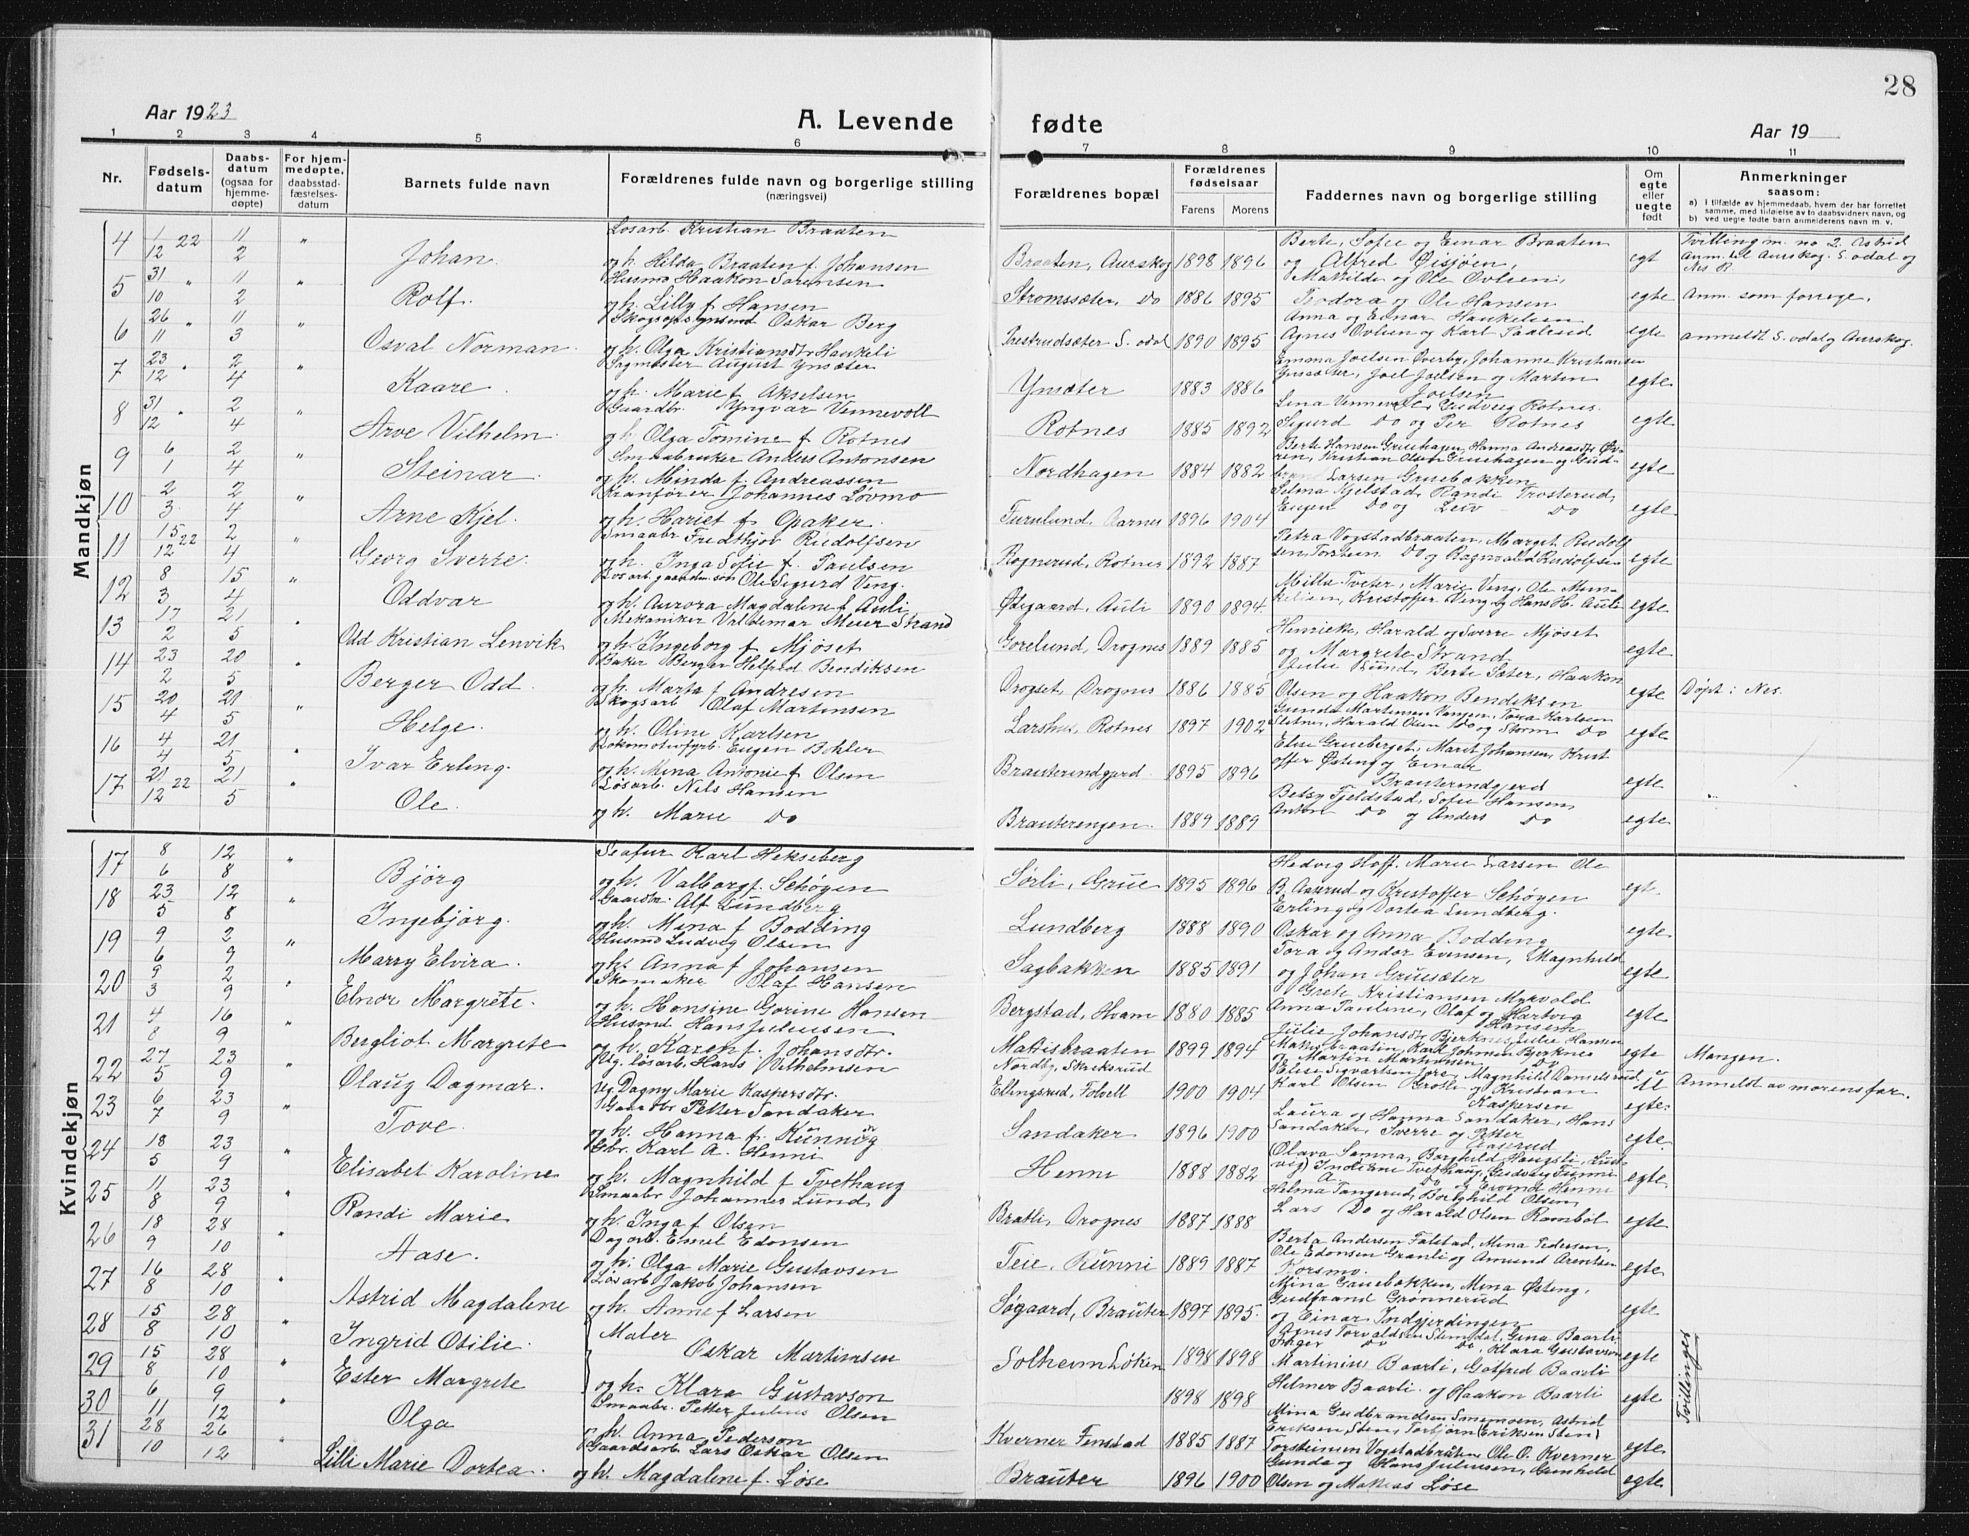 28
Aar 1923
A. Levende fødte
Aar 19
1 2 3 4 5 6 7 8 9 10 11
Nr.
Fødsels-datum
Daabs-datum (ogsaa for hjemme-døpte)
For hjem-medøpte, daabsstad-fæstelses-datum
Barnets fulde navn
Forældrenes fulde navn og borgerlige stilling (næringsvei)
Forældrenes bopæl
Forældrenes fødselsaar
Farens Morens
Faddernes navn og borgerlige stilling
Om egte eller uegte født
Anmerkninger saasom:
a) I tilfælde av hjemmedaab, hvem der har forrettet samme, med tilføielse av to daabsvidners navn, og
b) ved uegte født barn anmelderens navn m. v.
Mandkjøn
4 1/12 22 11/2 " Johan. Løsarb. Kristian Braaten og h. Hilda Braaten f. Johansen Braaten, Aurskog 1898 1896 Berte, Sofie og Einar Braaten og Alfred Øisjøen, egt Tvilling m. no 2. Astrid Anm. til Aurskog. S. odal og Nes
5 31/10 " 11/2 " Rolf. Husmd Haakon Sørensen og h. Lilly f. Hansen Strømssæter, Do 1886 1895 Mathilde og Ole Ovlsen, Teodora og Ole Hansen egte Anm. som forrige.
6 26/11 " 11/3 " Osval Norman. Oskar Berg og h. Olga Kristiansdtr Haukeli S. odal 1890 1895 Anna og Einar Haukelien Agnes Ovlsen og Karl egte anmeldt S. odal og Aurskog.
7 23/12 " 2/4 " Kaare. Sagmester August Ynsæter og h. Marie f. Akselsen Ynsæter 1883 1886 Emma Joelsen Øverby, Johanne Kristiansen Joel Joelsen og Martin Joelsen egte
8 31/12 " 2/4 " Arve Vilhelm. Gaardbr. Yngvar Vennevoll og h. Olga Tomine f. Rotnes Rotnes 1885 1892 Lina Vennevoll, Gudveig Rotnes. Sigurd Do og Per Rotnes egte
9 6/1 2/4 " Steinar. Smaabruker Anders Antonsen og h. Minda f. Andreassen Nordhagen 1884 1882 Berte Hansen Gruehagen, Hanna Kristian Olsen Gruehagen og Larsen Gruebakken egte
10 2/3 2/4 " Arne Kjel. Kranfører Johannes Løvmo og h. Hariet f. Opaker. Furulund, Aarnes 1896 1904 Selma Kjelstad, Randi Trosterud, Eugen Do og Leiv Do egte
11 15/12 22 2/4 " Georg Sverre. Smaabr Fredthjov Rudolfsen og h. Inga Sofie f. Paulsen Rognerud, Rotnes 1892 1887 Petra Vogstadbraaten, Margit Rudolfsen Torsten Do og Ragnvald Rudolfsen egte
12 8/3 15/4 " Oddvar Ole Sigurd Veng. og h. Aurora Magdalene f Auli Ødegaard, Auli 1890 1894 Milla Tveter, Marie Veng, Ole Kristoffer Veng og Hans H. Auli egte
13 17/2 21/5 " Odd Kristian Lenvik Mekaniker Valdemar Meier Strand og h. Ingeborg f. Mjøset Gorelund, Drognes 1889 1885 Henrieke, Harald og Sverre Mjøset og Margrete Strand egte
14 23/2 20/5 " Berger Odd. Baker Berger Helfred Bendiksen og h. Marta f. Andresen Drogset, Drognes 1886 1885 Julie Lund, Berte Sæter, Haakon Olsen og Haakon Bendiksen egte Døpt i Nes.
15 20/4 21/5 " Helge. Skogsarb Olaf Martinsen og h. Oline Karlsen Larshus, Rotnes 1897 1902 Gunda Martinsen Vangen, Tora Karlsen Slitnes, Harald Olsen Do og Storm Do egte
16 4/4 21/5 " Ivar Erling. Lokomotivfyrb. Eugen Bohler og h. Mina Antonie f. Olsen Brauterindgjerd 1895 1896 Elise Grueberget, Marit Johansen, Kristoffer Østing og Einar Brauterindgjerd egte
17 21/12 22 21/5 " Ole. Løsarb. Nils Hansen og h. Marie Do Brauterengen. 1889 1889 Betsy Fjeldstad, Sofie Hansen, Anton Do og Anders Do egte
Kvindekjøn
17 8/6 12/8 " Bjørg Karl Hekseberg og h. Valborg f. Schøgen Sørli, Grue 1895 1896 Hedvig Hoff. Marie Larsen Ole B. Aaserud og Kristoffer Schøgen egt.
18 23/5 12/8 " Ingebjørg. Gaardbr. Alf Lundberg og h. Mina f Bodding Lundberg 1888 1890 Erling og Dortea Lundberg. Oskar og Anna Bodding egte.
19 9/6 2/9 " Marry Elvira. Husmd Ludvig Olsen og h. Anna f Johansen Sagbakken 1885 1891 Tora og Andor Evensen, Magnhild og Johan Gruesæter egte
20 9/3 2/9 " Elnor Margrete. Skomaker Olaf Hansen og h. Hansine Gorine Hansen Bergstad, Hvam 1880 1885 Grete Kristiansen Myrvold Anna Pauline, Olaf og Hartvig Hansen egte
21 4/8 16/9 " Bergliot Margrete Husmd Hans Juliussen og h. Karen f. Johansdtr. Mattisbraaten 1899 1894 Julie Johansdtr Bjerknes, Julie Hansen Mattisbraaten, Karl Johnsen Bjerknes og Martin Martinsen Do egte Mangen.
22 27/5 23/9 " Olaug Dagmar. Ug. løsarb. Hans Wilhelmsen Ug Dagny Marie Kaspersdtr. Nordby, Skriksrud Ellingsrud, Tolvett 1900 1904 Magnhild Danielsrud Karl Olsen Groli og Kristian Kaspersen u Anmeldt av morens far.
23 6/7 23/9 " Tove. Gaardbr Petter Sandaker og h. Hanna f. Kunnig Sandaker 1896 1900 Laura og Hanna Sandaker, Hans Sandaker, Sverre og Petter Aaserud egte.
24 18/5 23/9 " Elisabet Karoline Gbr. Karl A. Henni og h. Magnhild f Tvethaug Henni 1888 1882 Olava Samma, Borghild Haugsli, Indiane Tvethaug, Do og Eivind Henni egte
25 11/8 23/9 " Randi Marie Smaabr Johannes Lund og h. Inga f Olsen Bratli, Drognes 1887 1888 Helma Tangerud, Borghild Olsen, Lars Do og Harald Olsen Rambøl egte
26 18/9 28/10 " Aase. Dagarb. Emil Edonsen og h. Olga Marie Gustavsen Teie, Runni 1889 1887 Berta Andersen Falstad, Mina Pedersen, Ole Edonsen Granli og Amund Arentsen Korsmo. egte
27 16/8 28/10 " Astrid Magdalene Løsarb Jakob Johansen og h. Anne f Larsen Søgaard, Brauter 1897 1895 Mina Gruebakken, Mina Østeng, Gudbrand Grønnerud og Einar Indgjerdingen egte
28 15/8 28/10 " Ingrid Otilie. Maler Oskar Martinsen Solheim Løken 1898 1898 Agnes Torvaldsen Gina Baarli Do, Klara Gustavson Martinius Baarli, Gotfred Baarli egte
29 15/8 28/10 " Ester Margrete og h. Klara Gustavson 1898 1898 Helmer Baarli og Haakon Baarli egte Tvillinger
30 6/11 9/12 " Olga Smaabr. Petter Julius Olsen og h. Anna Pederson Kverner Fenstad 1885 1887 Mina Gudbrandsen Astrid Eriksen Sten, Torbjørn (Eriksen Sten) Torsteinsen Vogstadbråten Ole O. Kverner egte
31 28/10 26/12 " Lilli Marie Dortea. Gaardsarb Lars Oskar Olsen og h. Magdalene f. Løse Brauter 1896 1900 Gunda og Hans Juliussen, Gunhild Olsen og Matias Løse egte